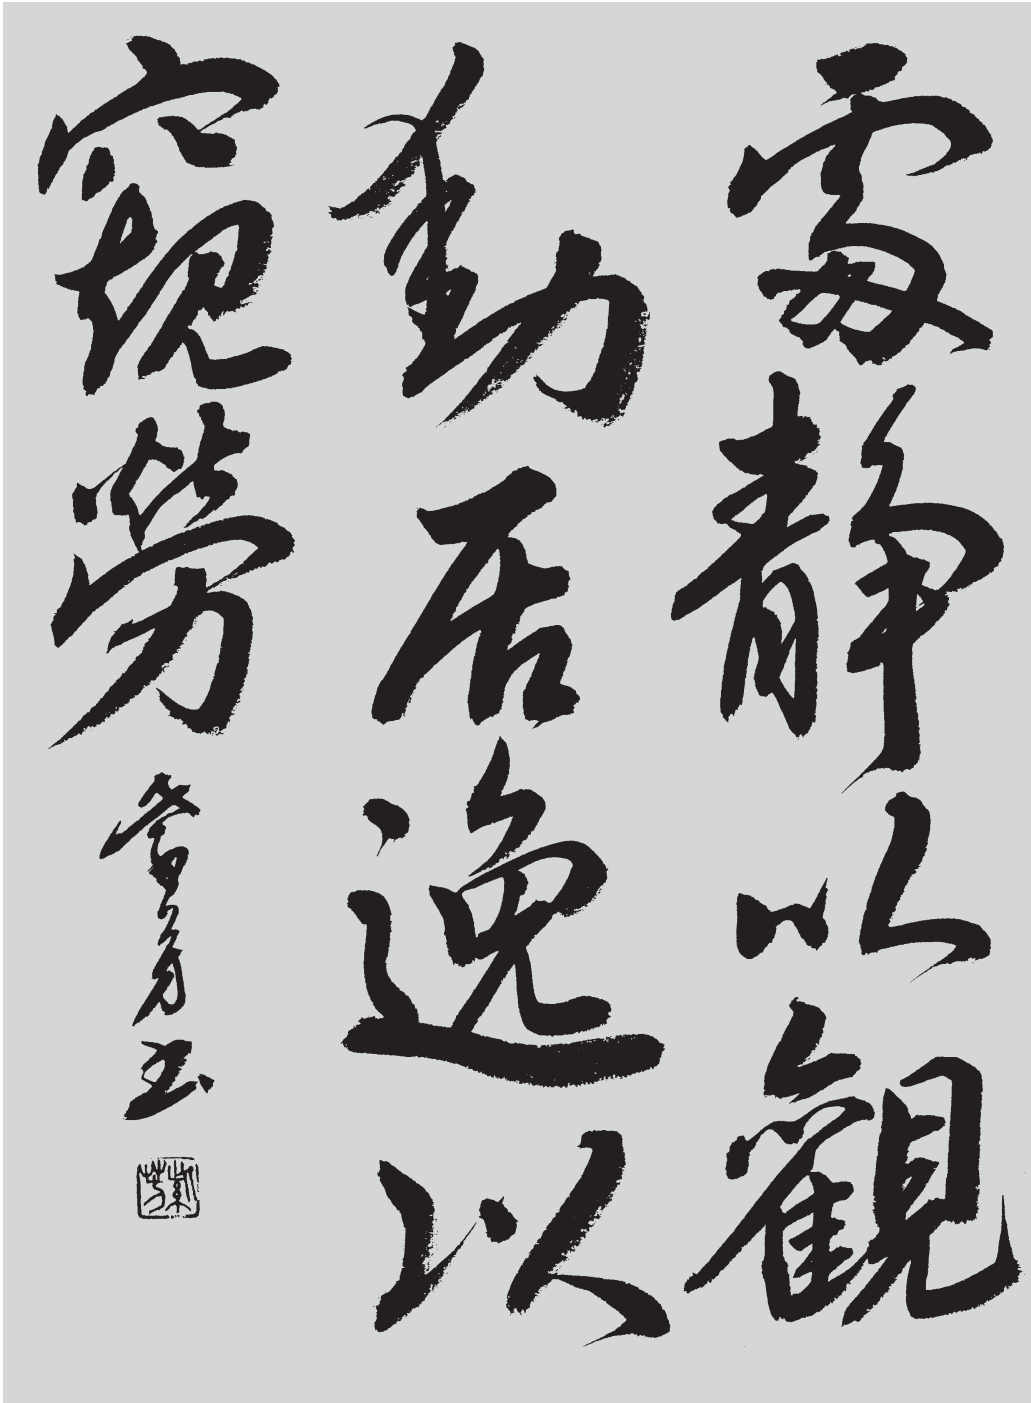 處靜以觀
動居逸以
窺勞
書